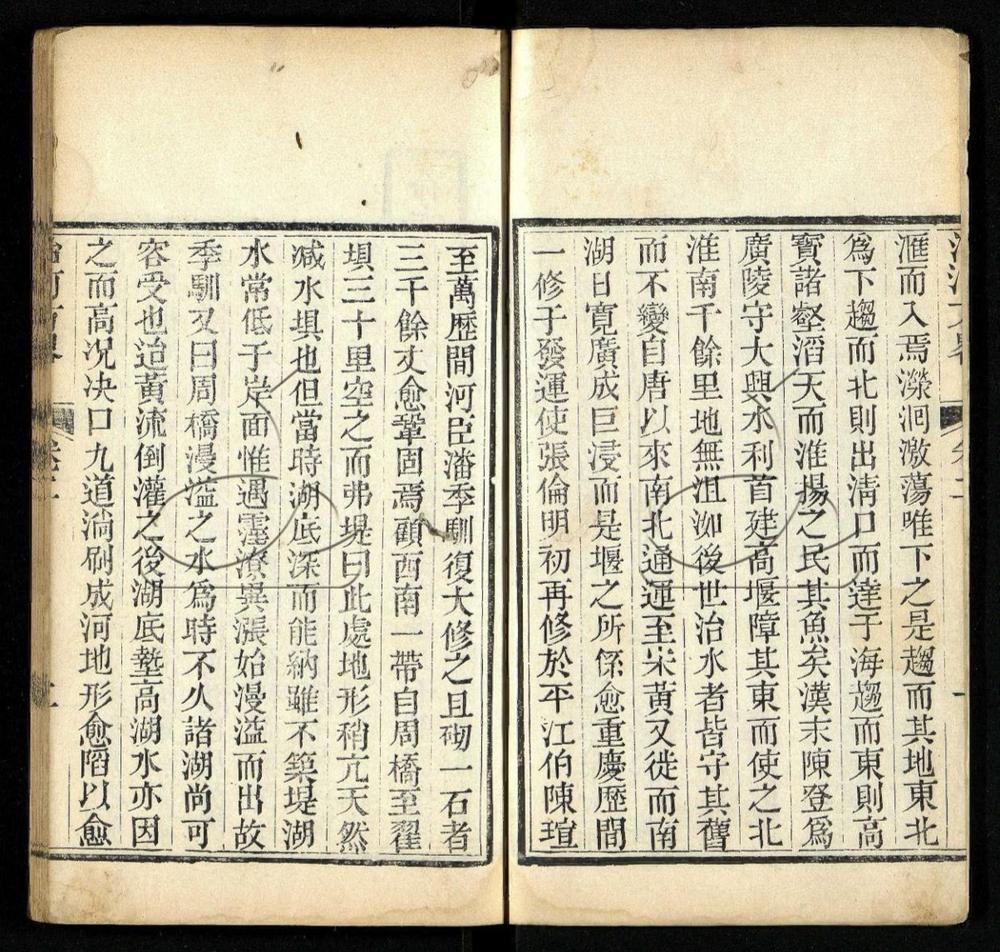 滙而入焉濴洄激蕩唯下之是趨而其地東北
爲下趨而北則出淸口而達于海趨而東則高
寶諸壑滔天而淮揚之民其魚矣漢末陳登爲
廣陵守大興水利首建高堰障其東而使之北
淮南千餘里地無沮洳後世治水者皆守其舊
而不變自唐以來南北通運至宋黃又徙而南
湖日寬廣成巨浸而是堰之所係愈重慶歷間
一修于發運使張倫明初再修於平江伯陳瑄
至萬歷間河臣潘季馴復大修之且砌一石者
三千餘丈愈鞏固焉顧西南一帶自周橋至翟
垻三十里空之而弗堤曰此處地形稍亢天然
減水垻也但當時湖底深而能納雖不築堤湖
水常低于岸面惟遇霪潦異漲始漫溢而出故
季馴又曰周橋漫溢之水爲時不久諸湖尚可
容受也迨黃流倒灌之後湖底墊高湖水亦因
之而高况决口九道淌刷成河地形愈陷以愈